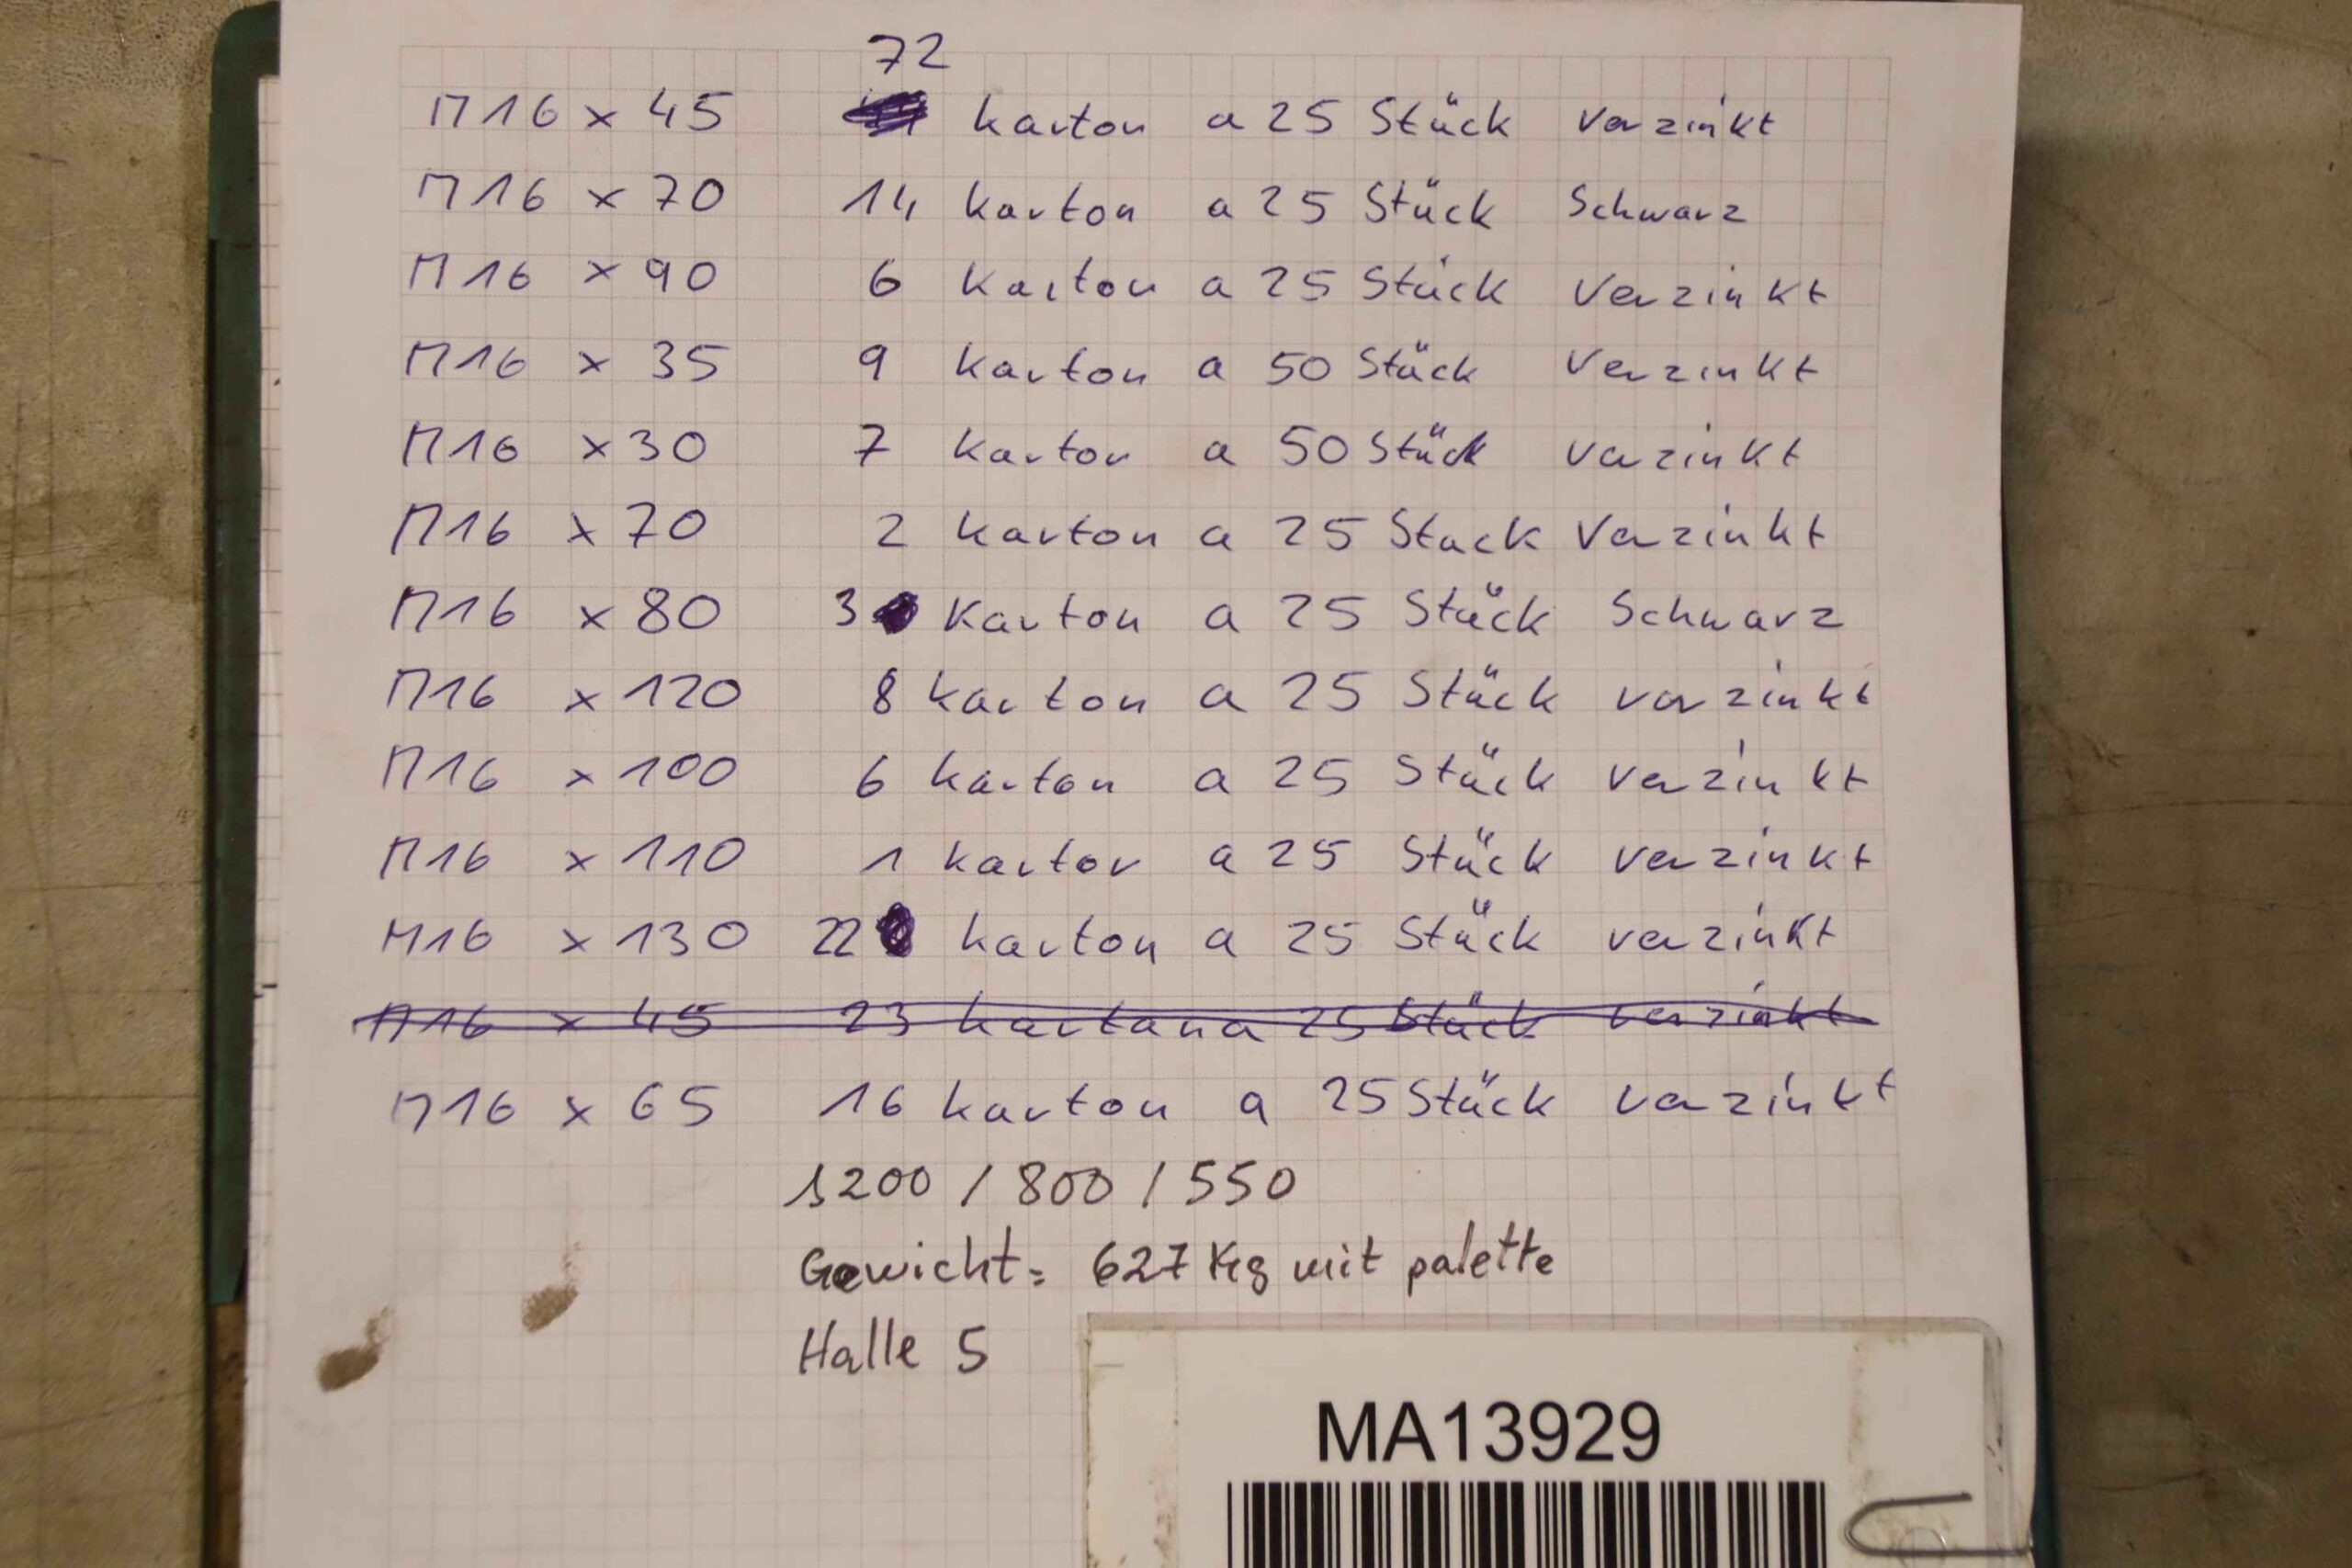 72
M16 x 45 karton a 25 Stück verzinkt
M16 x 70 14 karton a 25 Stück Schwarz
M16 x 90 6 karton a 25 Stück Verzinkt
M16 x 35 9 karton a 50 Stück Verzinkt
M16 x 30 7 karton a 50 Stück verzinkt
M16 x 70 2 karton a 25 Stuck Verzinkt
M16 x 80 3 Karton a 25 Stück Schwarz
M16 x 120 8 karton a 25 Stück verzinkt
M16 x 100 6 karton a 25 Stück verzinkt
M16 x 110 1 karton a 25 Stück verzinkt
M16 x 130 22 karton a 25 Stück verzinkt
M16 x 45 23 karton a 25 Stück verzinkt
M16 x 65 16 karton a 25 Stück verzinkt
1200 / 800 / 550
Gewicht: 627 Kg mit palette
Halle 5
MA13929